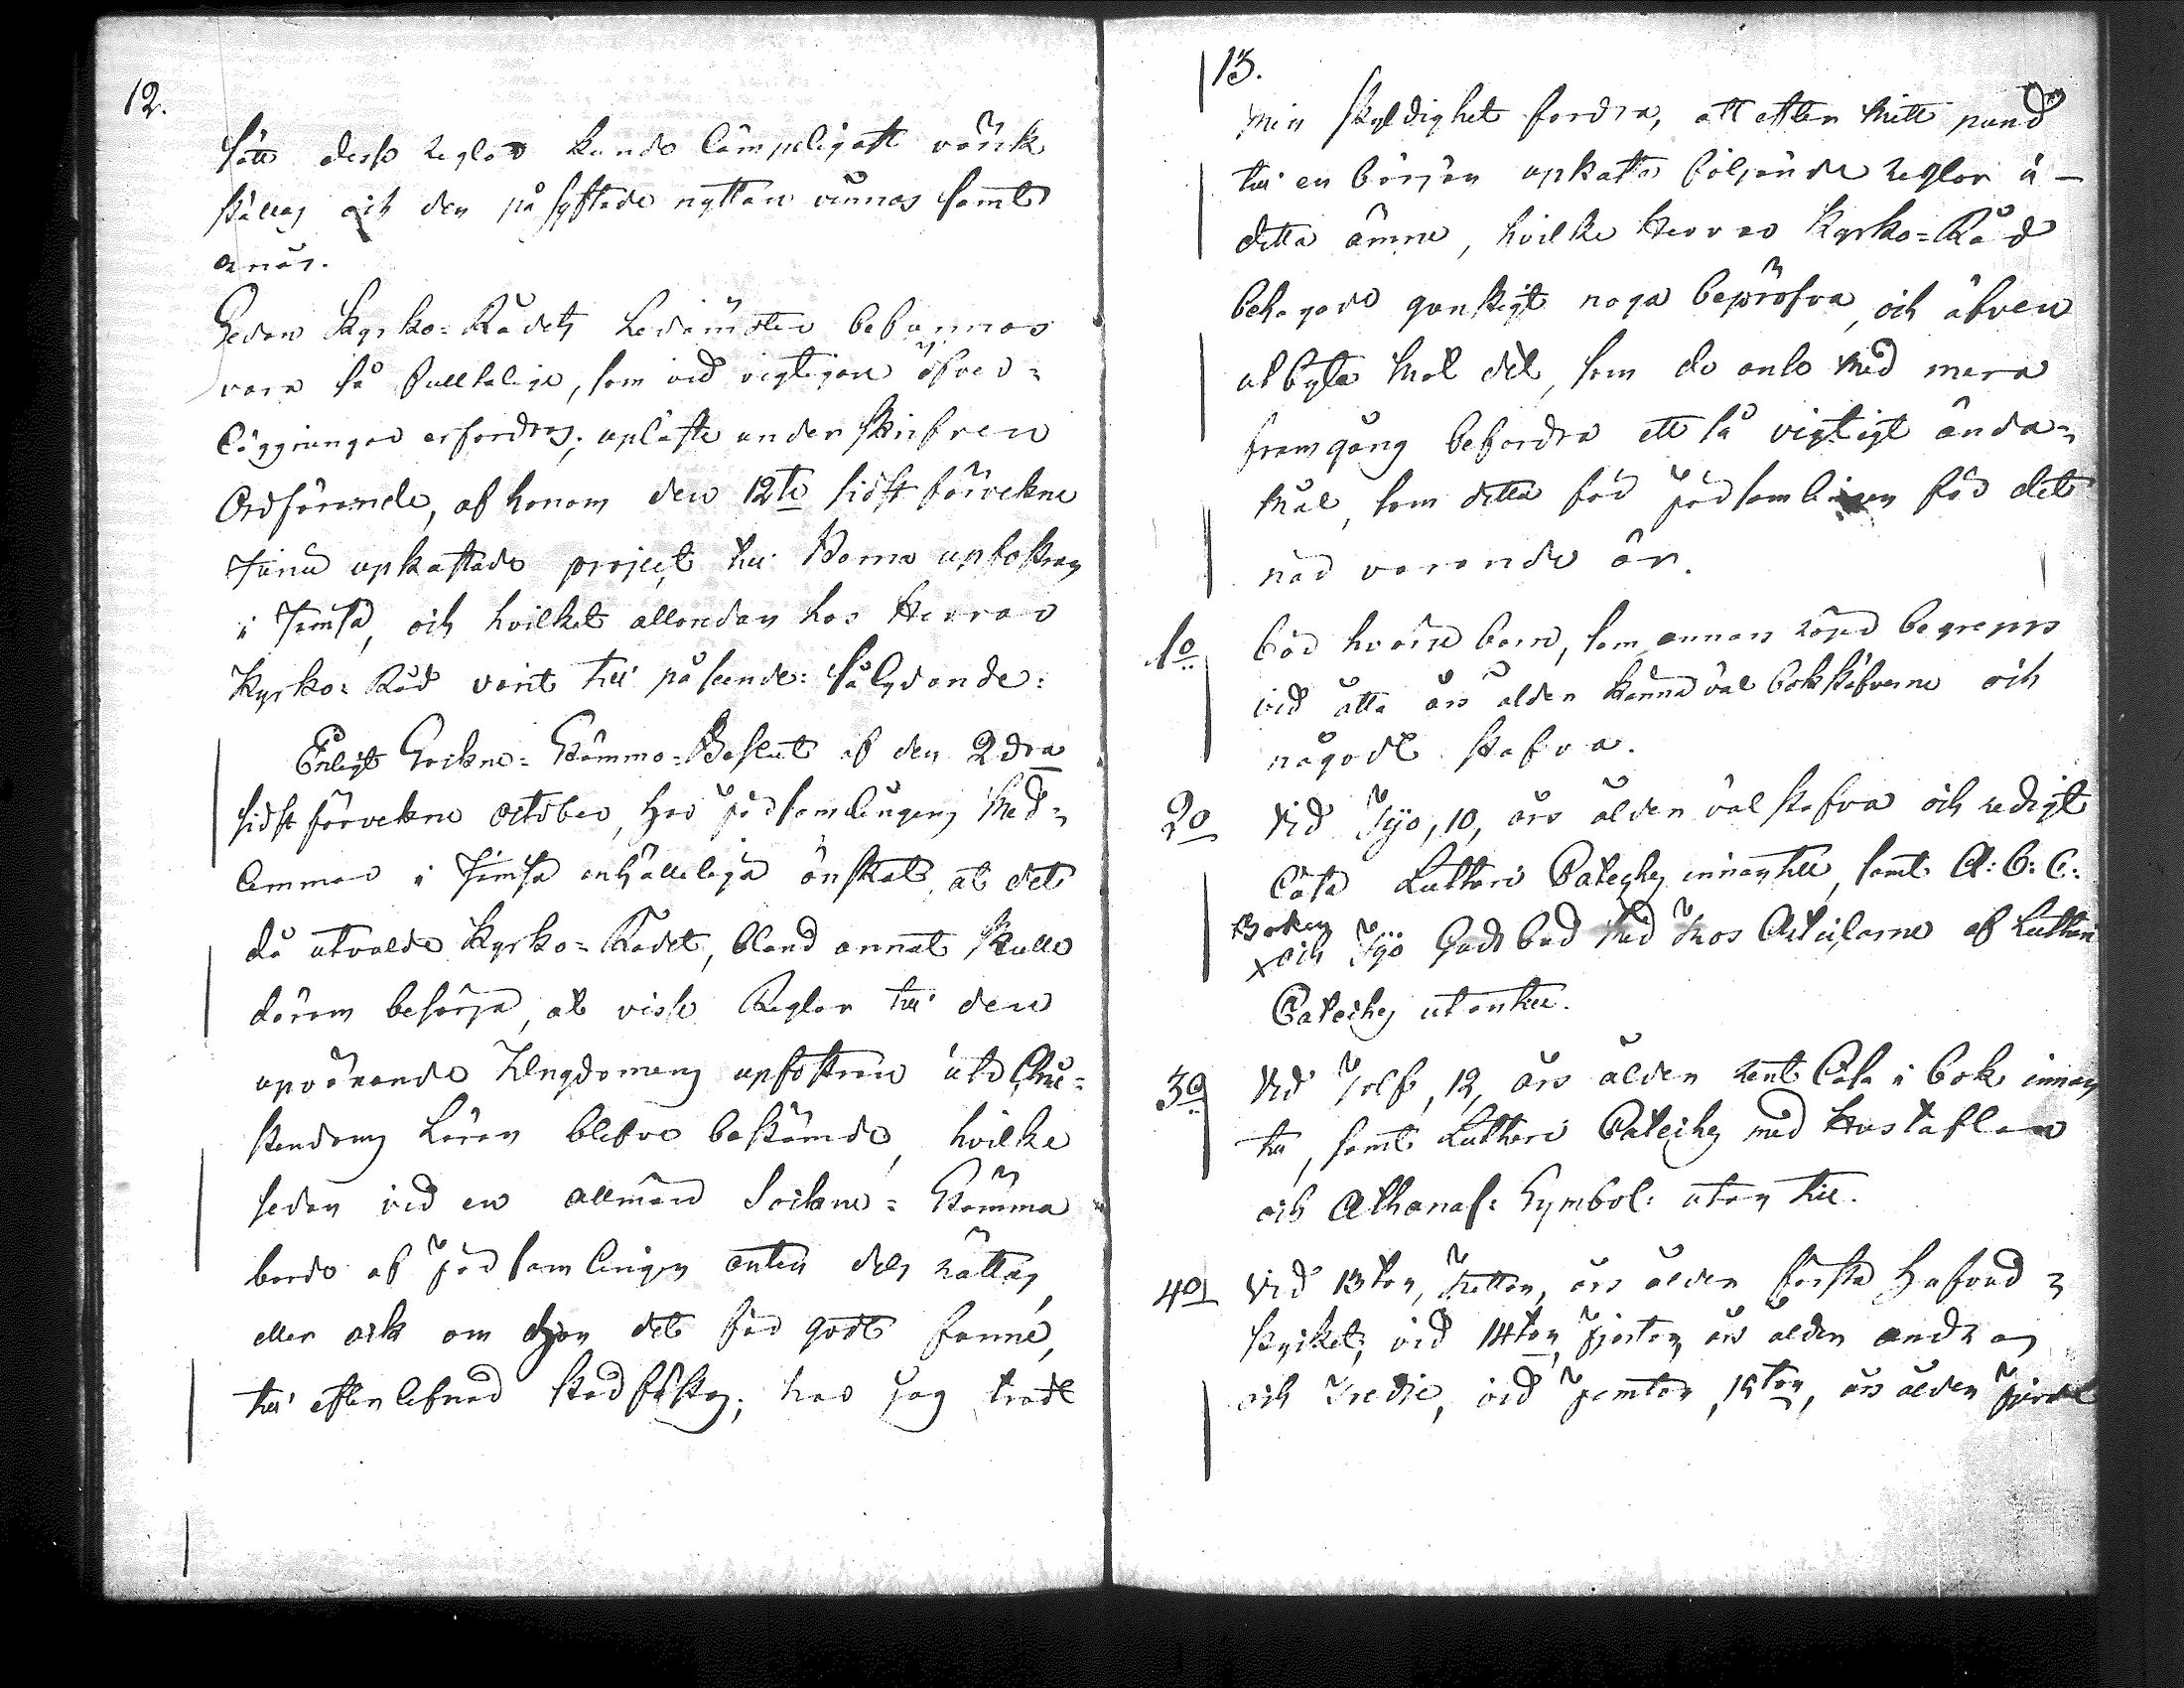 12.
sätt desse reglor kunde lämpeligast värk
ställas och den på syftade nyttan vinnas samt
ernås.
Sedan Kyrko-Rådets Ledamöter befunnos
vara så fulltalige, som vid vigtigare öfver-
läggningar erfordras; upläste underskrifven
Ordförande, af honom den 12te sidst förvekne
Junii upkastade project till Barna upfostran
i Jemsä, och hvilket allendan hos Herrar
Kyrko-Råd varit till påseende: så lydande:
Enligt Sockne-Stämmo-Beslut af den 2dra
sidst förvekne October, har församlingens Med-
lemmar i Jemsä enhälleliga önskat, at det
då utvalde Kyrko-Rådet, bland annat skulle
därom besörja, at visse Reglor till den
upväxande Ungdomens upfostran uti Chri-
stendoms Läran blefvo bestämde, hvilke
sedan vid en allmän Sockne-Stämma
borde af församlingen anten dels rättas,
eller ock om hon det för godt funne,
till efterlefnad stadfästas; har jag trodt
13.
min skyldighet fordra, att efter mitt pund
till en början upkasta följande reglor i
detta ämne, hvilke Herrar Kyrko-Råd
behagade gunstigt noga bepröfva, och äfven
utbyta mot det, som de anse med mera
framgång befordra ett så vigtigt ända-
mål, som detta för församlingen för det
när varande är.
1o bör hvarje barn, som annars
vid åtta års ålder känna väl bokstäfverne och
någodt stafva.
2o Vid Tijo, 10, års ålder väl stafva och redigt
läsa Lutheri Cateches innantill, samt A:B:C:
Boken
x och Tijo Guds bud med Tros Articlarne af Lutheri
Cateches utantill.
3o Vid Tolf, 12, års ålder rent läsa i bok innan
till, samt Lutheri Cateches med Hustaflan
och Athanas: Symbol: utan till.
4o Vid 13ton, tretton, års ålder första Hufvud-
stycket; vid 14ton, fjorton, års ålder andra
och tredie, vid femton, 15ton, års ålder fjerde